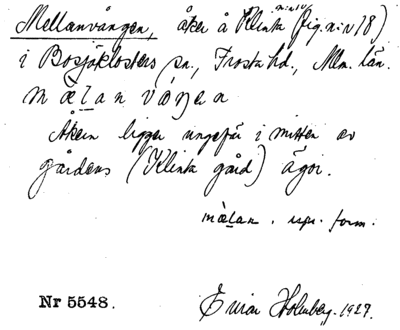 Mellanvången, åker å Klinta (fig. n:o 18)
i Bosjöklosters sn., Frosta hd., Mlm. län.
mælan våŋen
Åkern ligger ungefär i mitten av
gårdens (Klinta gård) ägor.
mælan. uspr. form.
Nr 5548.
Holmberg. 1927.